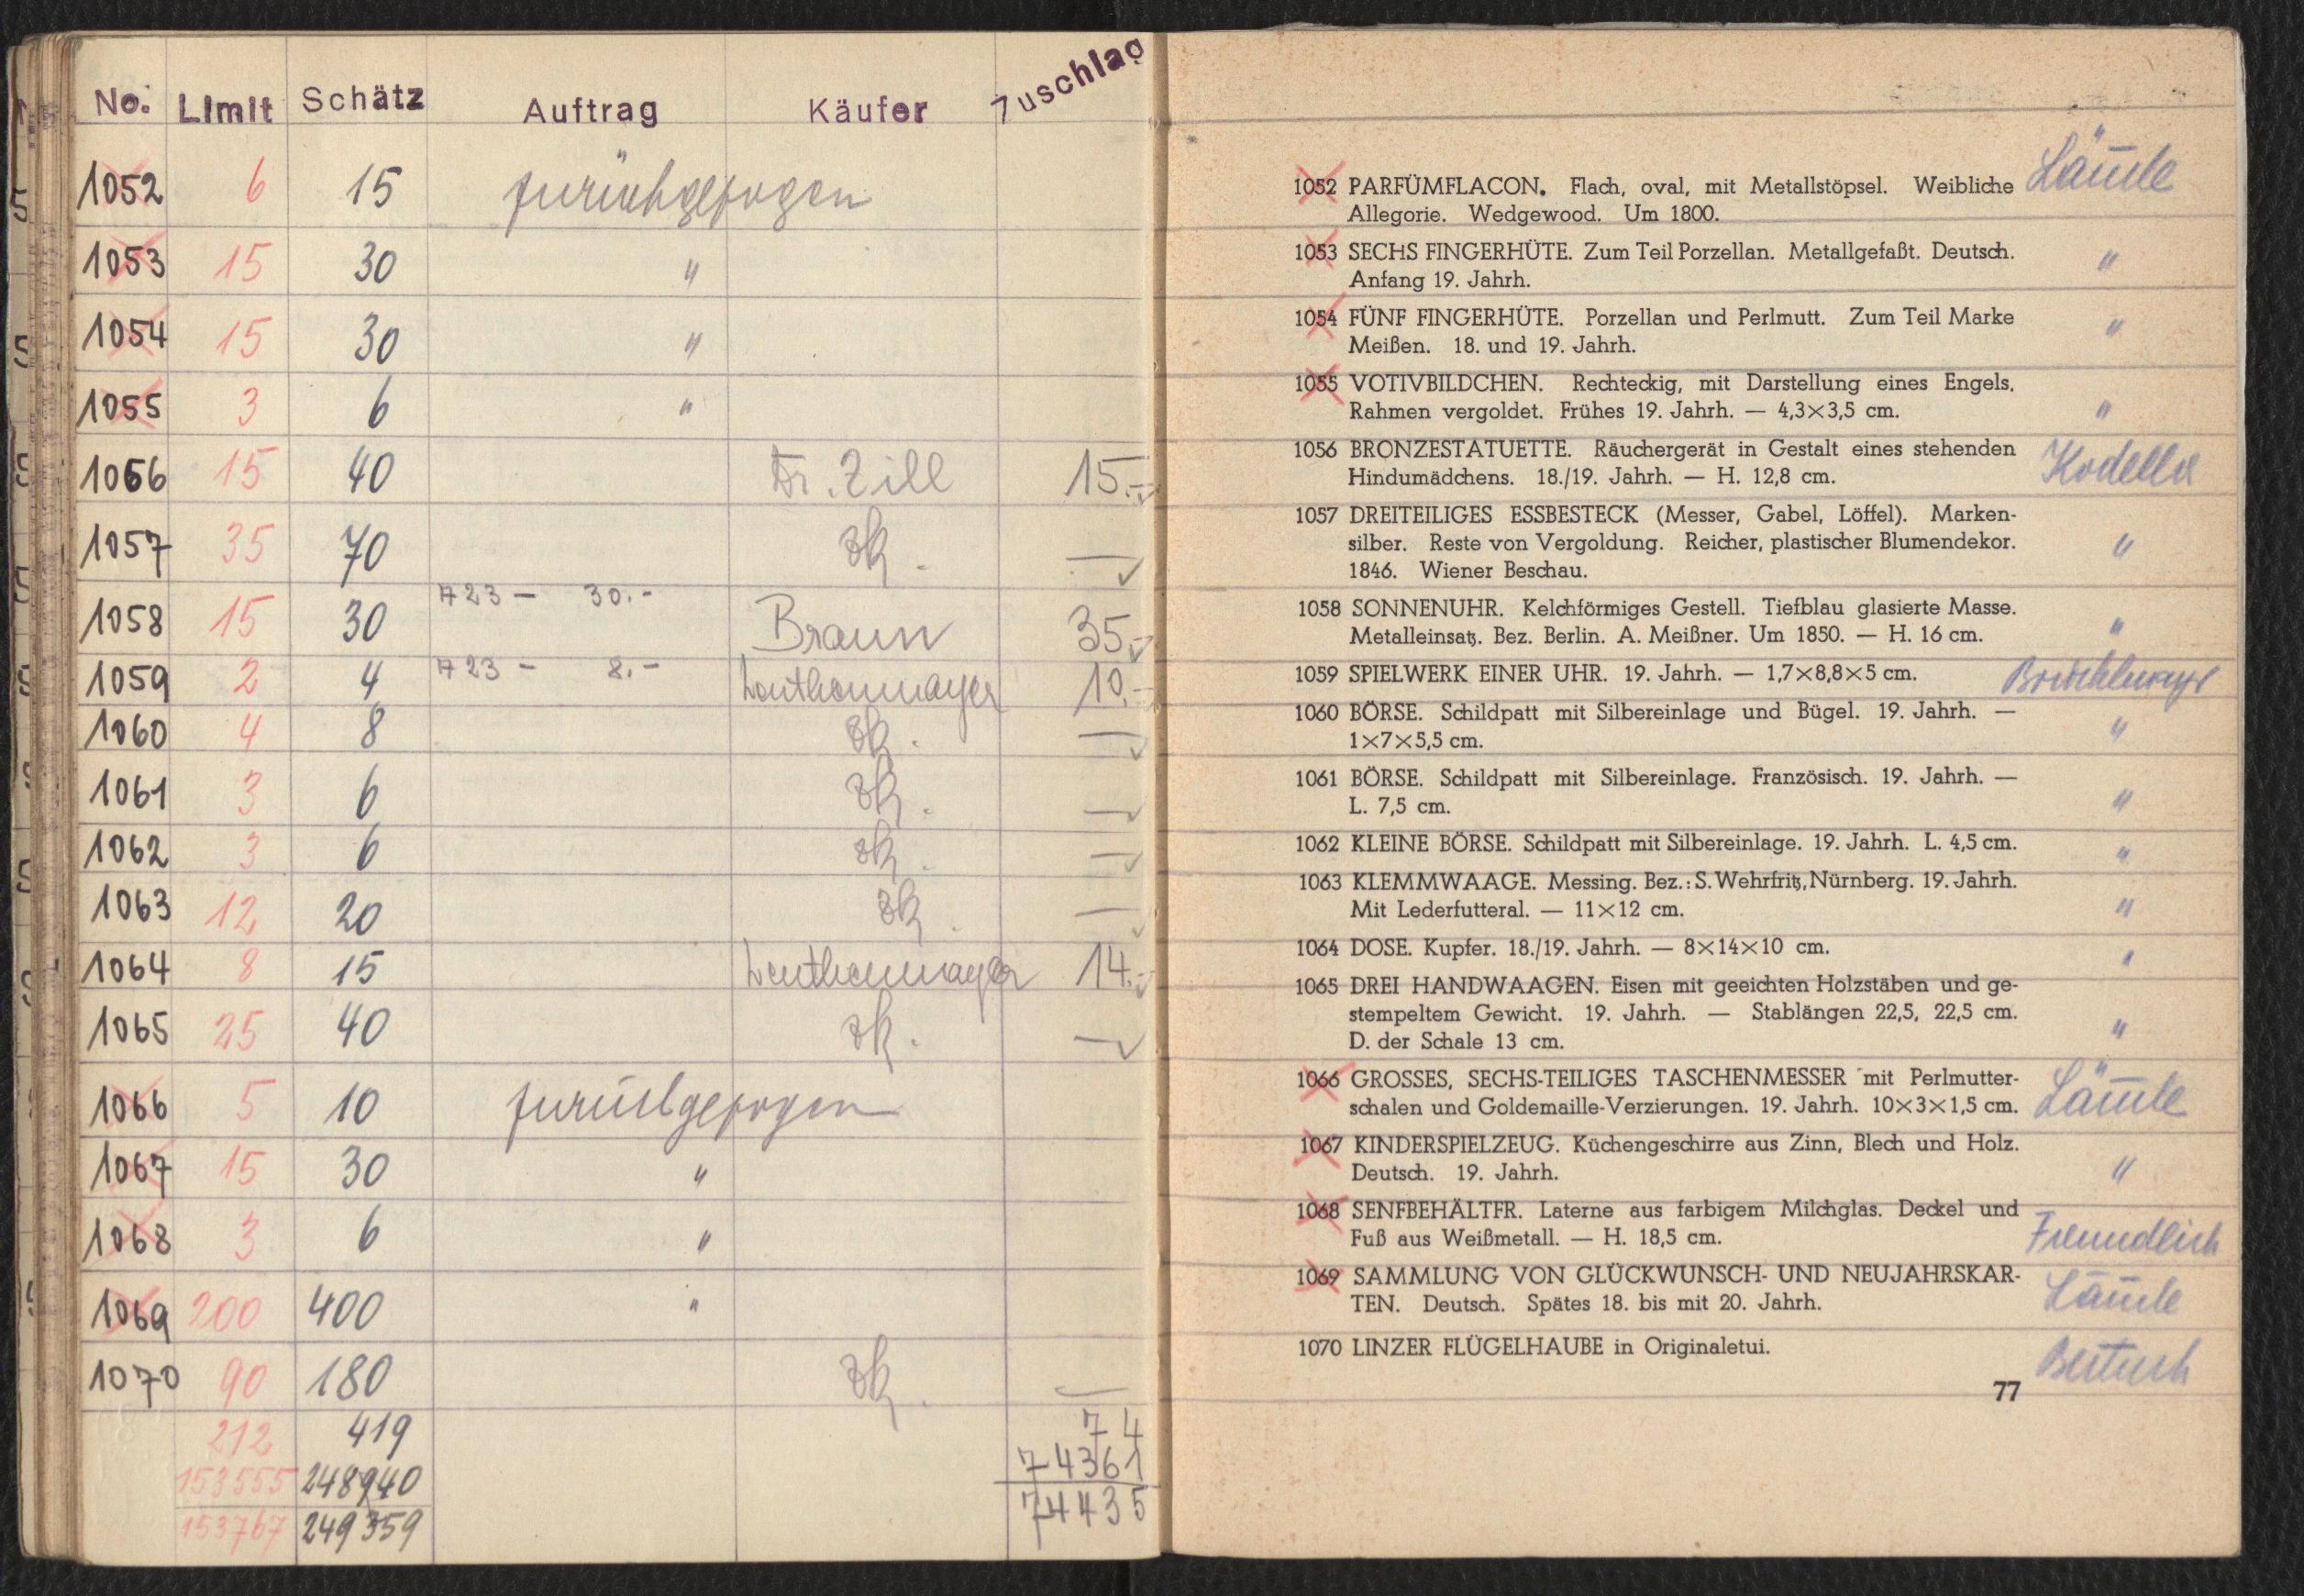 No. Limit Schätz Auftrag Käufer Zuschlag
1052 6 15 zurückgezogen
1053 15 30 "
1054 15 30 "
1055 3 6 "
1056 15 40 Dr. Zill 15.-
1057 35 70 zk. —
1058 15 30 A23 - 30.- Braun 35.-
1059 2 4 A23 - 8.- Leuthenmayer 10.-
1060 4 8 zk. —
1061 3 6 zk. —
1062 3 6 zk. —
1063 12 20 zk. —
1064 8 15 Leuthenmayer 14.-
1065 25 40 zk. —
1066 5 10 zurückgezogen
1067 15 30 "
1068 3 6 "
1069 200 400 "
1070 90 180 zk. —
212 419 74
153555 248940 74361
153767 249359 74435
1052 PARFÜMFLACON. Flach, oval, mit Metallstöpsel. Weibliche Lämle
Allegorie. Wedgewood. Um 1800.
1053 SECHS FINGERHÜTE. Zum Teil Porzellan. Metallgefaßt. Deutsch. "
Anfang 19. Jahrh.
1054 FÜNF FINGERHÜTE. Porzellan und Perlmutt. Zum Teil Marke "
Meißen. 18. und 19. Jahrh.
1055 VOTIVBILDCHEN. Rechteckig, mit Darstellung eines Engels.
Rahmen vergoldet. Frühes 19. Jahrh. — 4,3×3,5 cm. "
1056 BRONZESTATUETTE. Räuchergerät in Gestalt eines stehenden Kodella
Hindumädchens. 18./19. Jahrh. — H. 12,8 cm.
1057 DREITEILIGES ESSBESTECK (Messer, Gabel, Löffel). Marken-
silber. Reste von Vergoldung. Reicher, plastischer Blumendekor. "
1846. Wiener Beschau.
1058 SONNENUHR. Kelchförmiges Gestell. Tiefblau glasierte Masse.
Metalleinsatz. Bez. Berlin. A. Meißner. Um 1850. — H. 16 cm. "
1059 SPIELWERK EINER UHR. 19. Jahrh. — 1,7×8,8×5 cm.
1060 BÖRSE. Schildpatt mit Silbereinlage und Bügel. 19. Jahrh. — "
1×7×5,5 cm.
1061 BÖRSE. Schildpatt mit Silbereinlage. Französisch. 19. Jahrh. —
L. 7,5 cm. "
1062 KLEINE BÖRSE. Schildpatt mit Silbereinlage. 19. Jahrh. L. 4,5 cm. "
1063 KLEMMWAAGE. Messing. Bez.: S. Wehrfritz, Nürnberg. 19. Jahrh.
Mit Lederfutteral. — 11×12 cm. "
1064 DOSE. Kupfer. 18./19. Jahrh. — 8×14×10 cm. "
1065 DREI HANDWAAGEN. Eisen mit geeichten Holzstäben und ge-
stempeltem Gewicht. 19. Jahrh. — Stablängen 22,5, 22,5 cm. "
D. der Schale 13 cm.
1066 GROSSES, SECHS-TEILIGES TASCHENMESSER mit Perlmutter-
schalen und Goldemaille-Verzierungen. 19. Jahrh. 10×3×1,5 cm. Lämle
1067 KINDERSPIELZEUG. Küchengeschirre aus Zinn, Blech und Holz.
Deutsch. 19. Jahrh. "
1068 SENFBEHÄLTFR. Laterne aus farbigem Milchglas. Deckel und
Fuß aus Weißmetall. — H. 18,5 cm. Freundlich
1069 SAMMLUNG VON GLÜCKWUNSCH- UND NEUJAHRSKAR-
TEN. Deutsch. Spätes 18. bis mit 20. Jahrh. Lämle
1070 LINZER FLÜGELHAUBE in Originaletui.
77